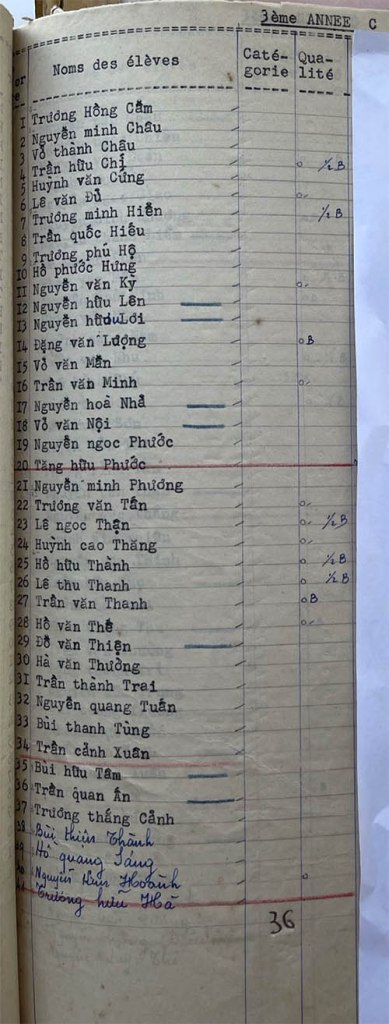 3ème ANNEE C
Noms des élèves Caté- Qua-
gorie lité
1 Trương Hồng Cẩm
2 Nguyễn minh Châu
3 Võ thành Châu
4 Trần hữu Chí ½B
5 Huỳnh văn Cứng
6 Lê văn Đủ
7 Trương minh Hiển ½B
8 Trần quốc Hiếu
9 Trương phú Hộ
10 Hồ phước Hưng
11 Nguyễn văn Kỳ
12 Nguyễn hữu Lên
13 Nguyễn hữu Lợi
14 Đặng văn Lượng B
15 Võ văn Mẫn
16 Trần văn Minh
17 Nguyễn hoà Nhã
18 Võ văn Nội
19 Nguyễn ngọc Phước
20 Tăng hữu Phước
21 Nguyễn minh Phương
22 Trương văn Tấn
23 Lê ngọc Thận ½B
24 Huỳnh cao Thăng
25 Hồ hữu Thành ½B
26 Lê thu Thanh ½B
27 Trần văn Thanh B
28 Hồ văn Thế
29 Đỗ văn Thiện
30 Hà văn Thưởng
31 Trần thành Trai
32 Nguyễn quang Tuấn
33 Bùi thanh Tùng
34 Trần cảnh Xuân
35 Bùi hữu Tâm
36 Trần quan Ấn
37 Trương thắng Cảnh
38 Bùi thiên Thành
Hồ quang Sáng
Nguyễn Hoành
Trương hữu Hà
36